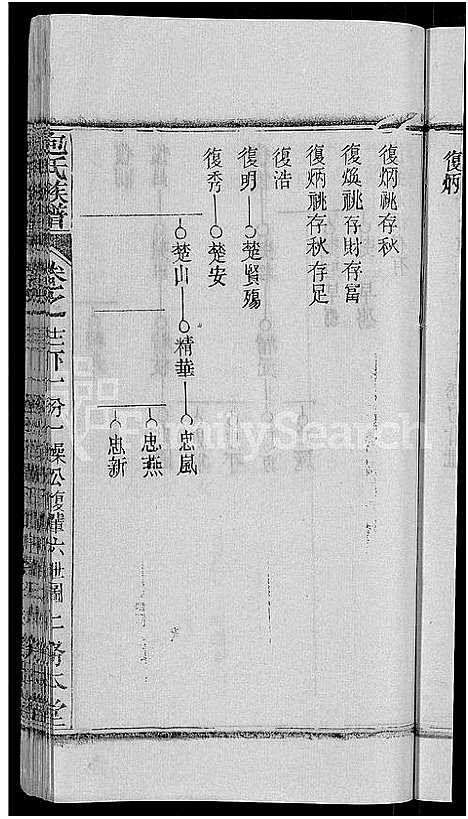 復炳
復炳祧存秋
復煥祧存財存富
復炳祧存秋存足
復浩
復明 楚賢殤
復秀 楚安
楚山 精華 忠嵐
忠燕
忠新
包氏族譜 卷之十三下一份一燥公復輩六世圖 二務本堂
FamilySearch